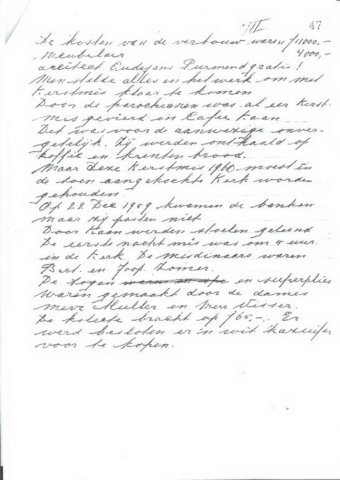 VII 47
De kosten van de verbouw waren f 11000,-
Meubelair 4000,-
arsiteat Eudejans Purmend gratis!
Men stelde alles in het werk om met
Kerstmis klaar te komen
Door de parochianen was al eer Kerst
mis gevierd in Cafee Kaan
Dit was voor de aanwezige onver-
getelijk. Zij werden onthaald op
koffie en krenten brood.
Maar deze Kerstmis 1960 moest in
de toen aangekochte Kerk worden
gehouden
Op 22 Dec 1959 kwamen de banken
maar zij pasten niet
Door Kaan werden stoelen geleend
De eerste nacht mis was om 4 uur
in de Kerk. De misdinaars waren
Bert. en Joop Homer.
De togen en superplies
waren gemaakt door de dames
mevr Muller en Mevr Visser.
De kolekte bracht op f 60,-. Er
werd besloten er 'n wit kazuifel
voor te kopen.